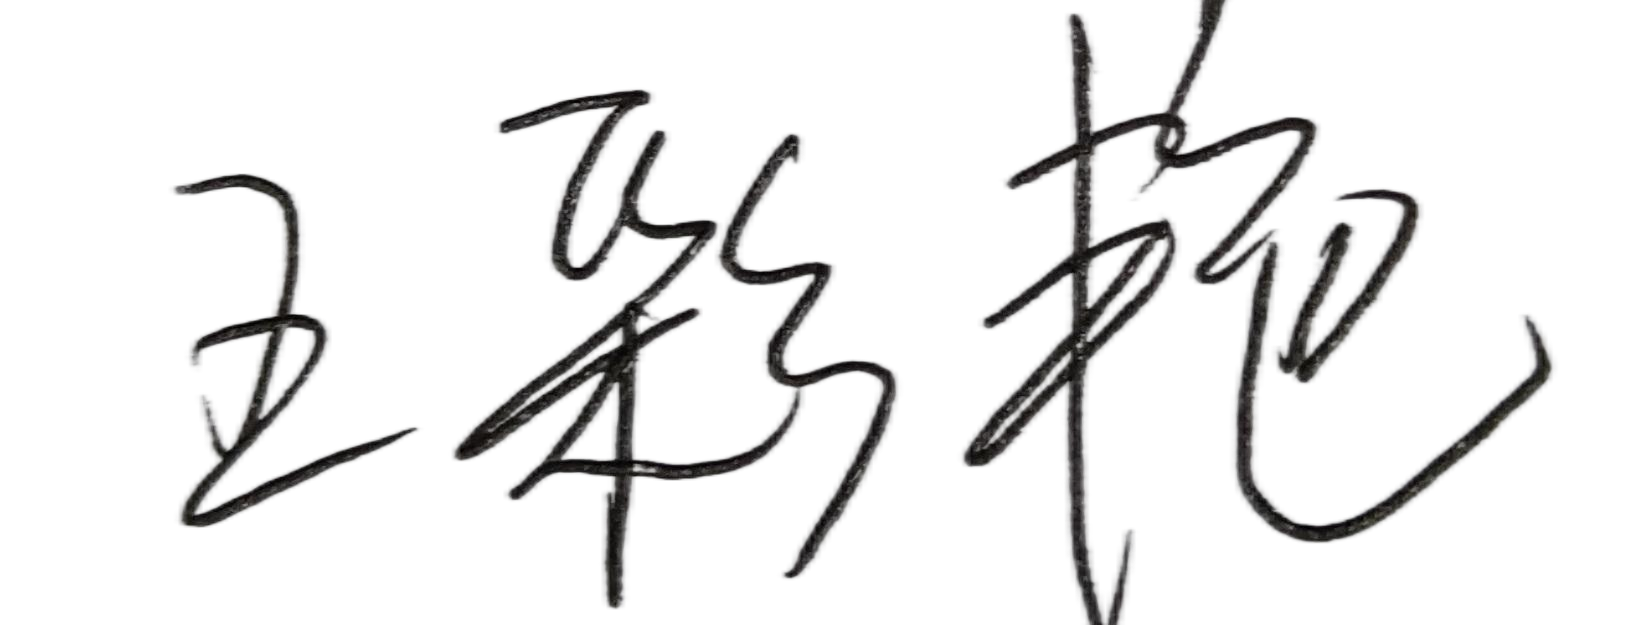 王彩艳